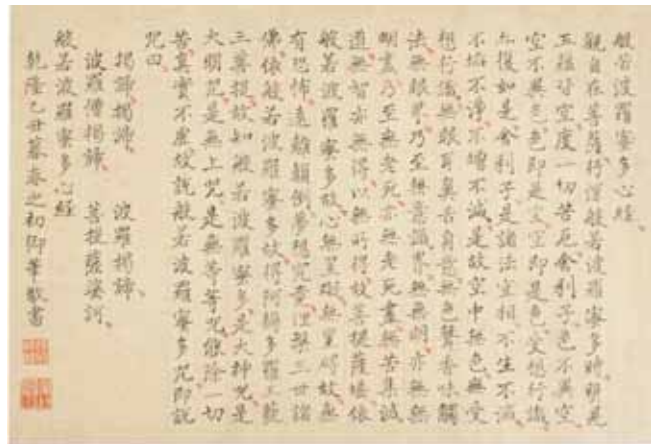 般若波羅蜜多心經
觀自在菩薩行深般若波羅蜜多時照見
五蘊皆空度一切苦厄舍利子色不異空
空不異色色即是空空即是色受想行識
亦復如是舍利子是諸法空相不生不滅
不垢不淨不增不減是故空中無色無受
想行識無眼耳鼻舌身意無色聲香味觸
法無眼界乃至無意識界無無明亦無無
明盡乃至無老死亦無老死盡無苦集滅
道無智亦無得以無所得故菩提薩埵依
般若波羅蜜多故心無罣礙無罣礙故無
有恐怖遠離顛倒夢想究竟涅槃三世諸
佛依般若波羅蜜多故得阿耨多羅三藐
三菩提故知般若波羅蜜多是大神咒是
大明咒是無上咒是無等等咒能除一切
苦真實不虛故說般若波羅蜜多咒即說
咒曰
揭諦揭諦 波羅揭諦
波羅僧揭諦 菩提薩婆訶
般若波羅蜜多心經
乾隆乙丑暮春之初御筆敬書